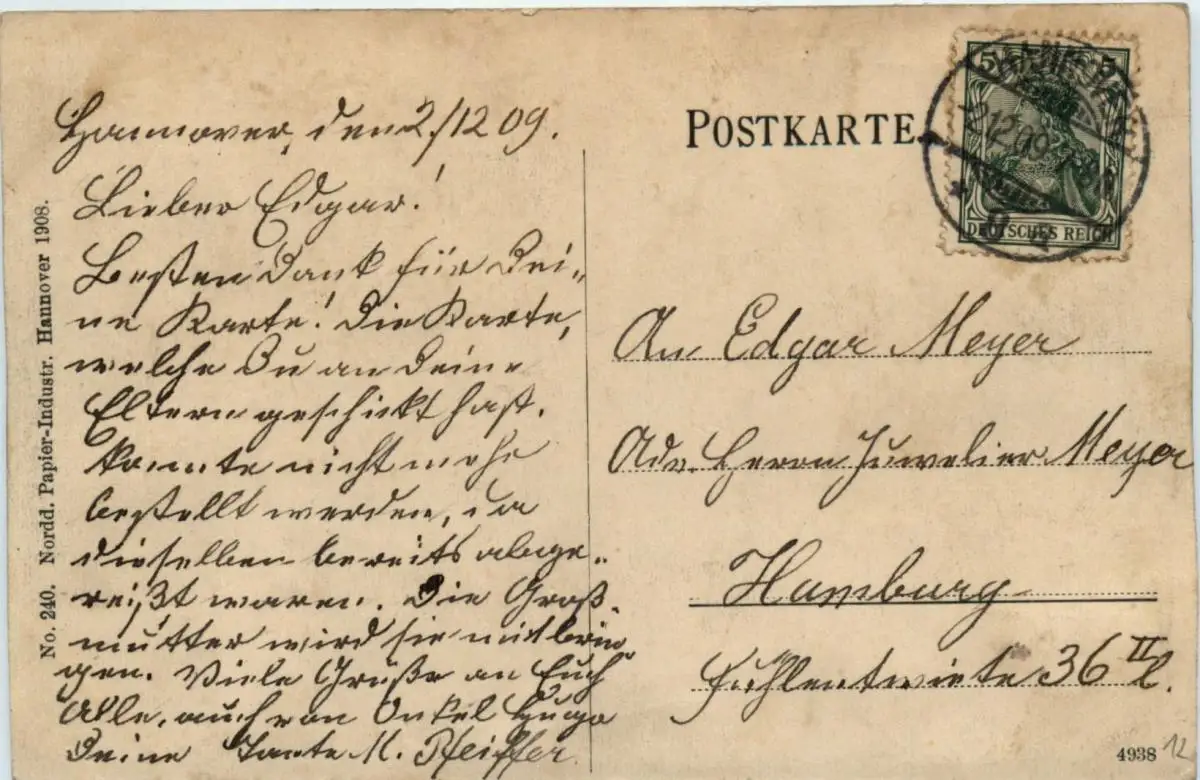 Hannover, den 2/12 09.
Lieber Edgar!
Besten Dank für Dei-
ne Karte! Die Karte,
welche Du an Deine
Eltern geschickt hast,
konnte nicht mehr
bestellt werden, da
dieselben bereits abge-
reißt waren. Die Groß-
mutter wird sie mitbrin
gen. Viele Grüße an Euch
Alle, auch von Onkel Hugo
Deine Tante M. Pfeiffer.
No. 240. Nordd. Papier-Industr. Hannover 1908.
POSTKARTE
5 5
DEUTSCHES REICH
2.12.09
An Edgar Meyer
Adr. Herrn Juwelier Meyer
Hamburg
Fuhlentwiete 36 II l.
4938
12